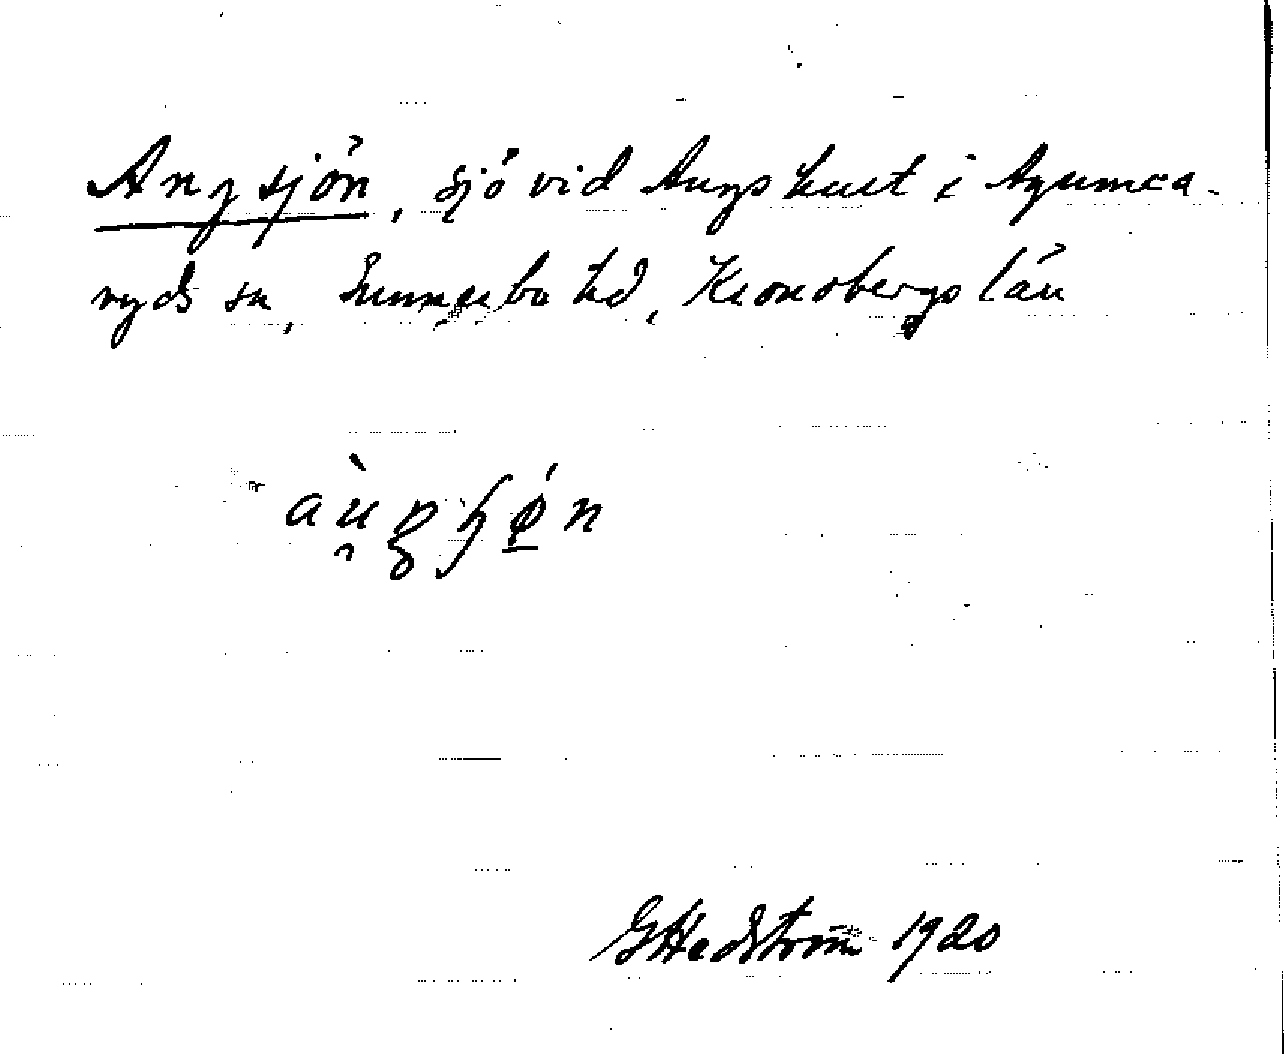 Angsjön, sjö vid Augshult i Agunna-
ryds sn, Sunnerbo hd, Kronobergs län
GHedström 1920